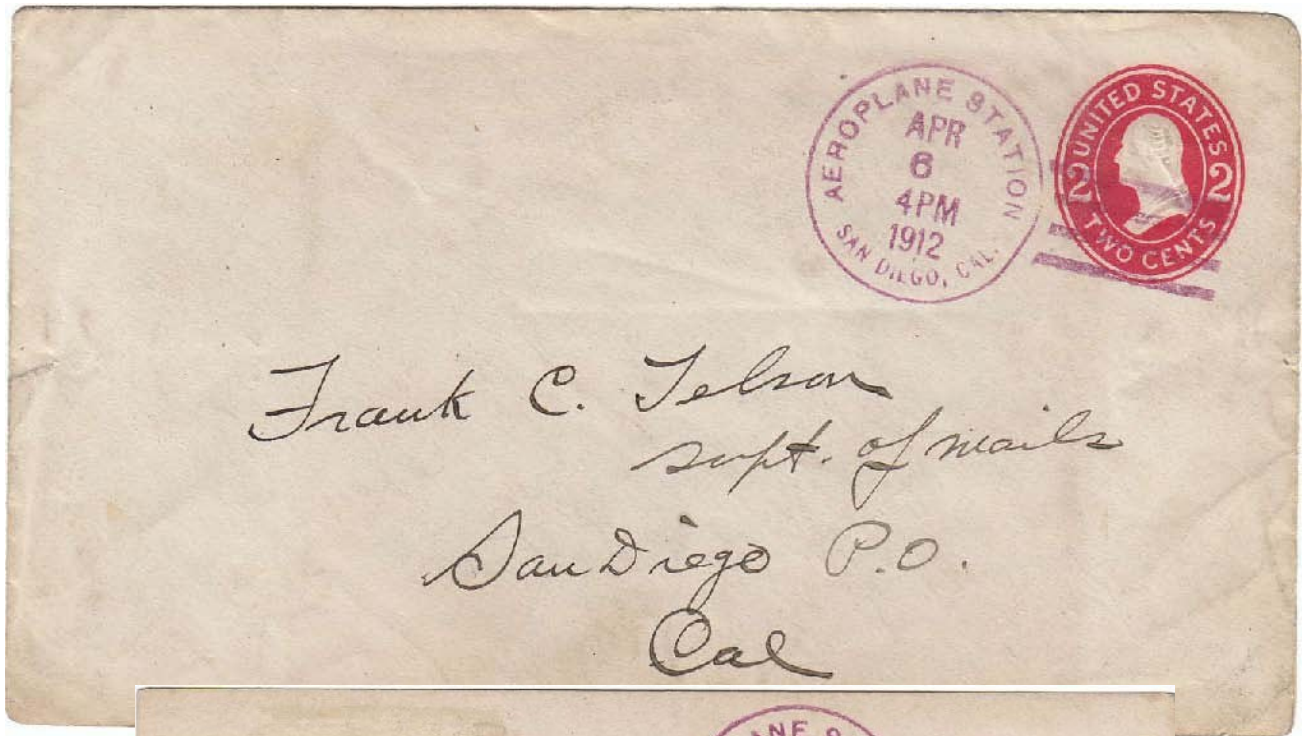 AEROPLANE STATION
APR
6
4PM
1912
SAN DIEGO, CAL.
UNITED STATES
2 2
TWO CENTS
Frank C. Telson
supt. of mails
San Diego P.O.
Cal